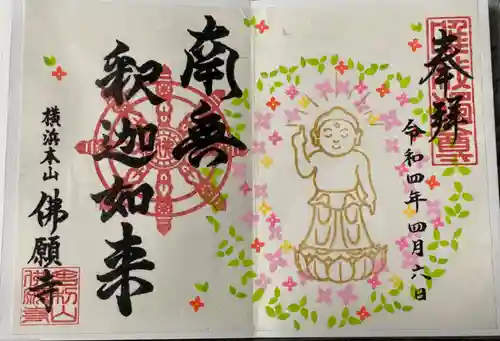 奉拝
令和四年四月六日
南無
釈迦如来
横浜本山
佛願寺